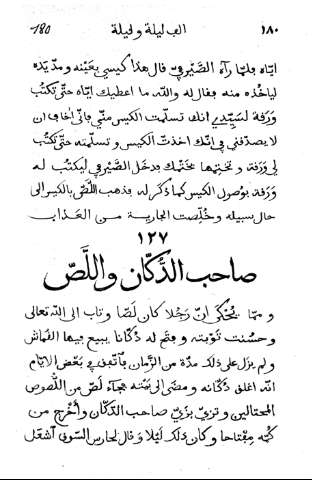 ١٨٠ الف ليلة وليلة 180
اياه فلما رآه الصيرفي قال هذا كيسي بعينه ومد يده
لياخذه منه فقال له والله ما اعطيك اياه حتى تكتب
ورقة لسيدي انك تسلمت الكيس مني فاني اخاف ان
لا يصدقني في انك اخذت الكيس وتسلمته حتى تكتب
لي ورقة وتختمها بختمك فدخل الصيرفي ليكتب له
ورقة بوصول الكيس كما ذكر له فذهب اللص بالكيس الى
حال سبيله وخلصت الجارية من العذاب
١٢٧
صاحب الدكان واللص
و مما يحكى ان رجلا كان لصا و تاب الى الله تعالى
وحسنت توبته و فتح له دكانا يبيع فيها القماش
ولم يزل على ذلك مدة من الزمان فاتفق في بعض الايام
انه اغلق دكانه ومضى الى بيته فجآء لص من اللصوص
المحتالين وتزيي بزي صاحب الدكان و أخرج من
كمه مفتاحا وكان ذلك ليلا وقال لحارس السوق أشعل